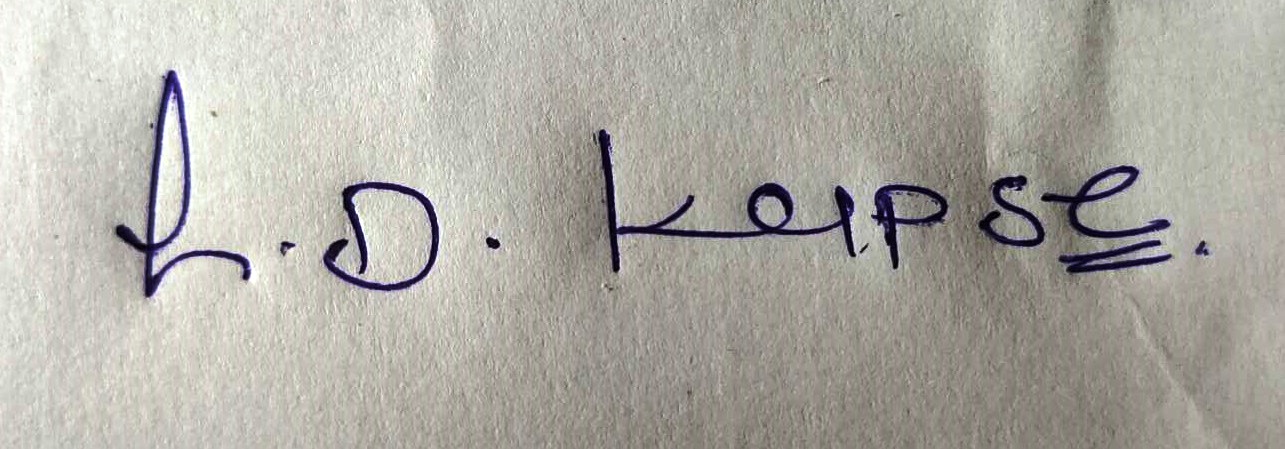 L.D. Kapse.